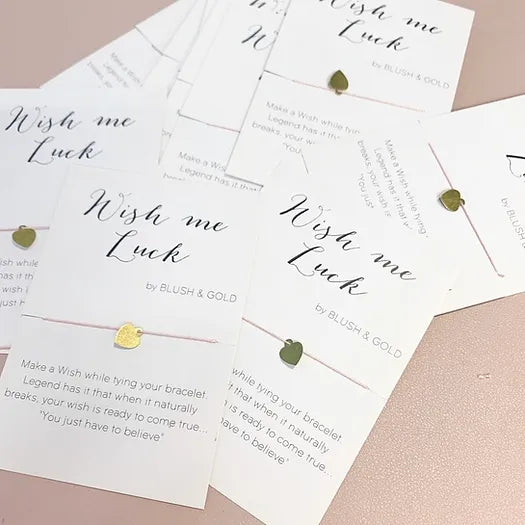 Wish me
Luck
by BLUSH & GOLD
Make a Wish while tying your bracelet.
Legend has it that when it naturally
breaks, your wish is ready to come true...
"You just have to believe"
Wish me
Luck
by BLUSH & GOLD
while tying your bracelet
has it that when it naturally
your wish is ready to come true...
have to believe"
Wish me
Luck
Make a Wish while
Legend has it th
breaks, your wis
"You just
Wish me
Luck
by BLUSH & GOLD
Make a Wish while tying
Legend has it that
breaks, your wi
"You
Make a Wish while tying
Legend has it that w
breaks, your wish is
"You just
by BLUSH & GOLD